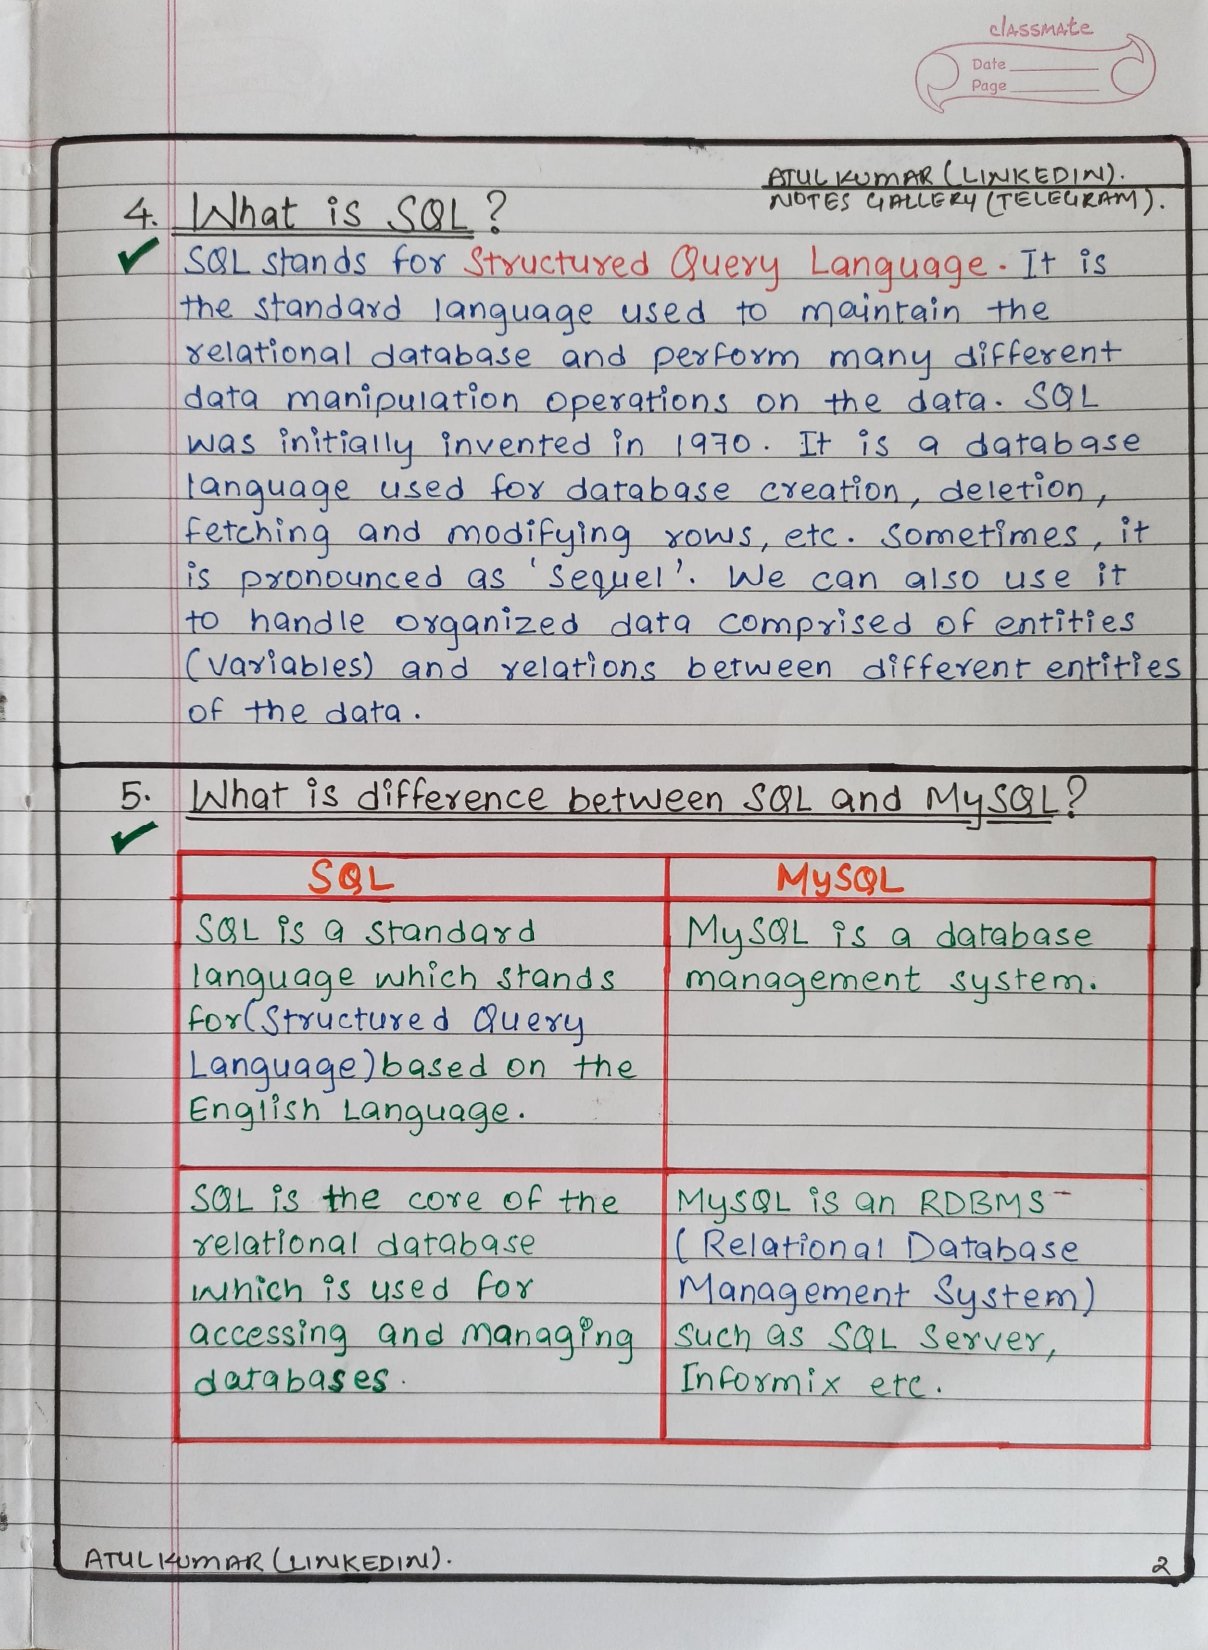 classmate
Date
Page
ATUL KUMAR (LINKEDIN).
NOTES GALLERY (TELEGRAM).
4. What is SQL?
SQL stands for Structured Query Language. It is
the standard language used to maintain the
relational database and perform many different
data manipulation operations on the data. SQL
was initially invented in 1970. It is a database
language used for database creation, deletion,
fetching and modifying rows, etc. Sometimes, it
is pronounced as 'sequel'. We can also use it
to handle organized data comprised of entities
(variables) and relations between different entities
of the data.
5. What is difference between SQL and MySQL?
SQL
SQL is a standard
language which stands
for (Structured Query
Language) based on the
English Language.
MySQL
MySQL is a database
management system.
SQL is the core of the
relational database
which is used for
accessing and managing
databases.
MySQL is an RDBMS-
(Relational Database
Management System)
such as SQL Server,
Informix etc.
ATUL KUMAR (LINKEDIN).
2